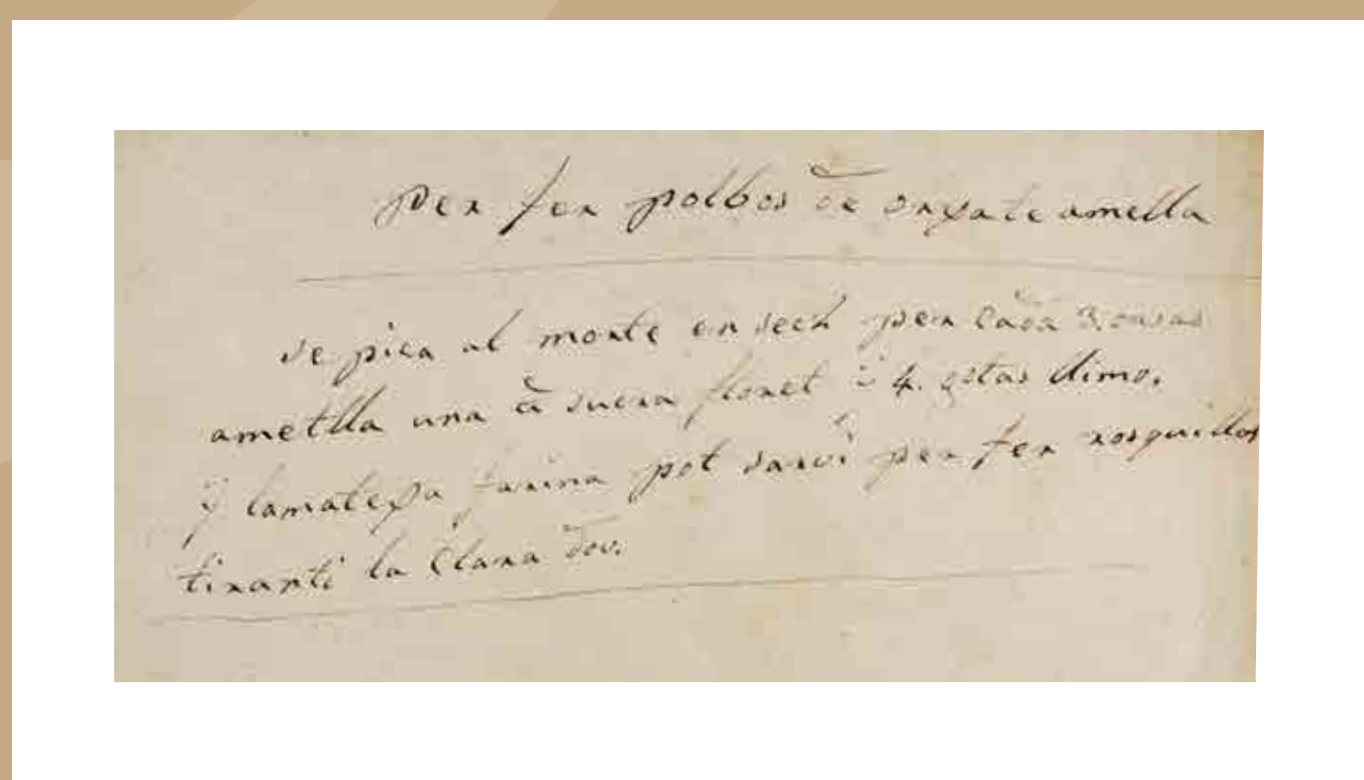 per fer polbos de orxate amella
se pica al morte en sech per cada 3. onsas
ametlla una de sucra floret i 4. gotas llimo.
y lamatexa farina pot sarvi per fer rosquillos
tiranti la Clara dou.